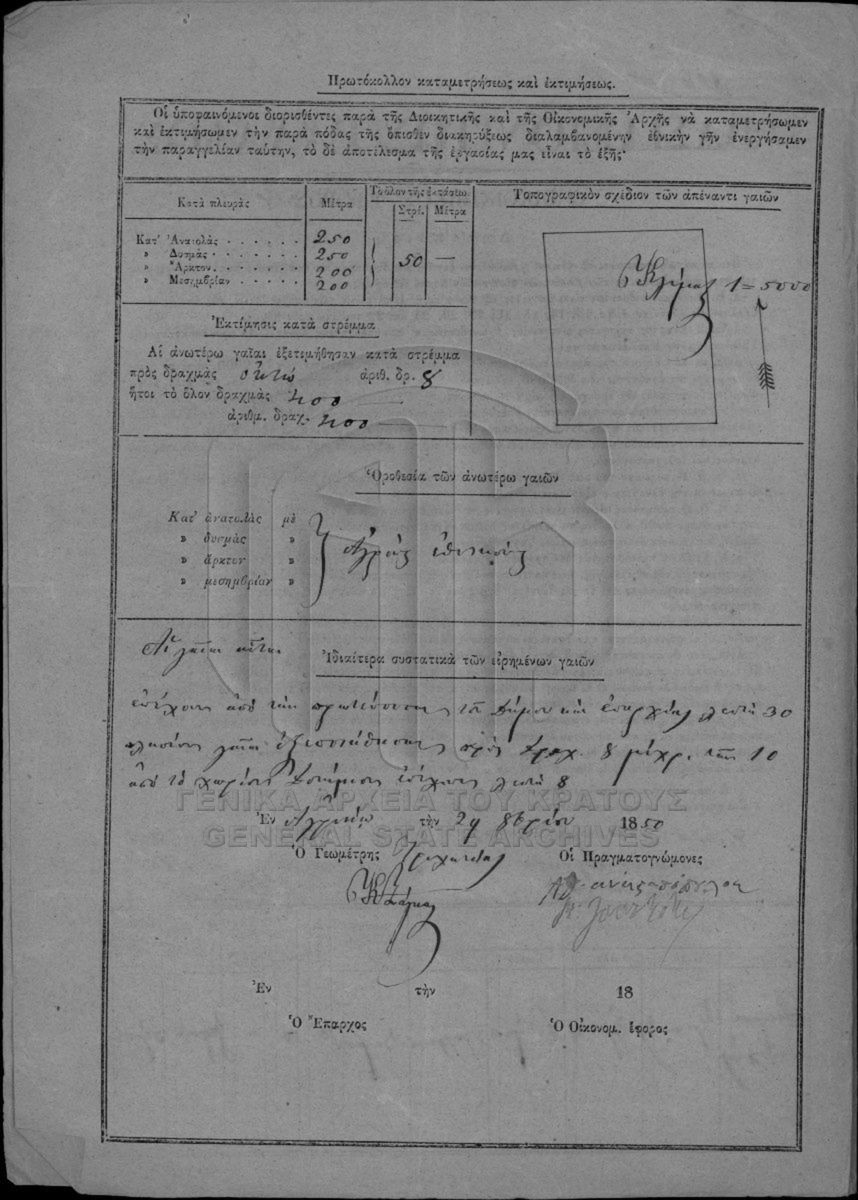 Πρωτόκολλον καταμετρήσεως καὶ ἐκτιμήσεως.
Οἱ ὑποφαινόμενοι διορισθέντες παρὰ τῆς Διοικητικῆς καὶ τῆς Οἰκονομικῆς Ἀρχῆς νὰ καταμετρήσωμεν
καὶ ἐκτιμήσωμεν τὴν παρὰ πόδας τῆς ὄπισθεν διακηρύξεως διαλαμβανομένην ἐθνικὴν γῆν ἐνεργήσαμεν
τὴν παραγγελίαν ταύτην, τὸ δὲ ἀποτέλεσμα τῆς ἐργασίας μας εἶναι τὸ ἑξῆς·
Κατὰ πλευρὰς
Μέτρα
Τὸ ὅλον τῆς ἐκτάσεως.
Στρέ.
Μέτρα
Κατ' Ἀνατολὰς 250
» Δυσμὰς 250
» Ἄρκτον 200
» Μεσημβρίαν 200
50 —
Τοπογραφικὸν σχέδιον τῶν ἀπέναντι γαιῶν
1=5000
Ἐκτίμησις κατὰ στρέμμα
Αἱ ἀνωτέρω γαῖαι ἐξετιμήθησαν κατὰ στρέμμα
πρὸς δραχμὰς ὀκτὼ ἀριθ. δρ. 8
ἤτοι τὸ ὅλον δραχμὰς 400
ἀριθμ. δραχ. 400
Ὁροθεσία τῶν ἀνωτέρω γαιῶν
Κατ' ἀνατολὰς μὲ
» δυσμὰς »
» ἄρκτον »
» μεσημβρίαν »
Ἀγροὺς ἐθνικοὺς
Αἱ γαῖαι αὗται
Ἰδιαίτερα συστατικὰ τῶν εἰρημένων γαιῶν
ἀπέχουν ἀπὸ τὴν πρωτεύουσαν τοῦ Δήμου καὶ ἐπαρχίας λεπτὰ 30
πρὸς δραχ. 8 μέχρι τῶν 10
ἀπὸ τὸ χωρίον ἀπέχουν λεπτὰ 8
ΓΕΝΙΚΑ ΑΡΧΕΙΑ ΤΟΥ ΚΡΑΤΟΥΣ
GENERAL STATE ARCHIVES
Ἐν Ἀγρινίῳ τὴν 29 8βρίου 1850
Ὁ Γεωμέτρης
Οἱ Πραγματογνώμονες
Ἐν τὴν 18
Ὁ Ἔπαρχος
Ὁ Οἰκονομ. ἔφορος